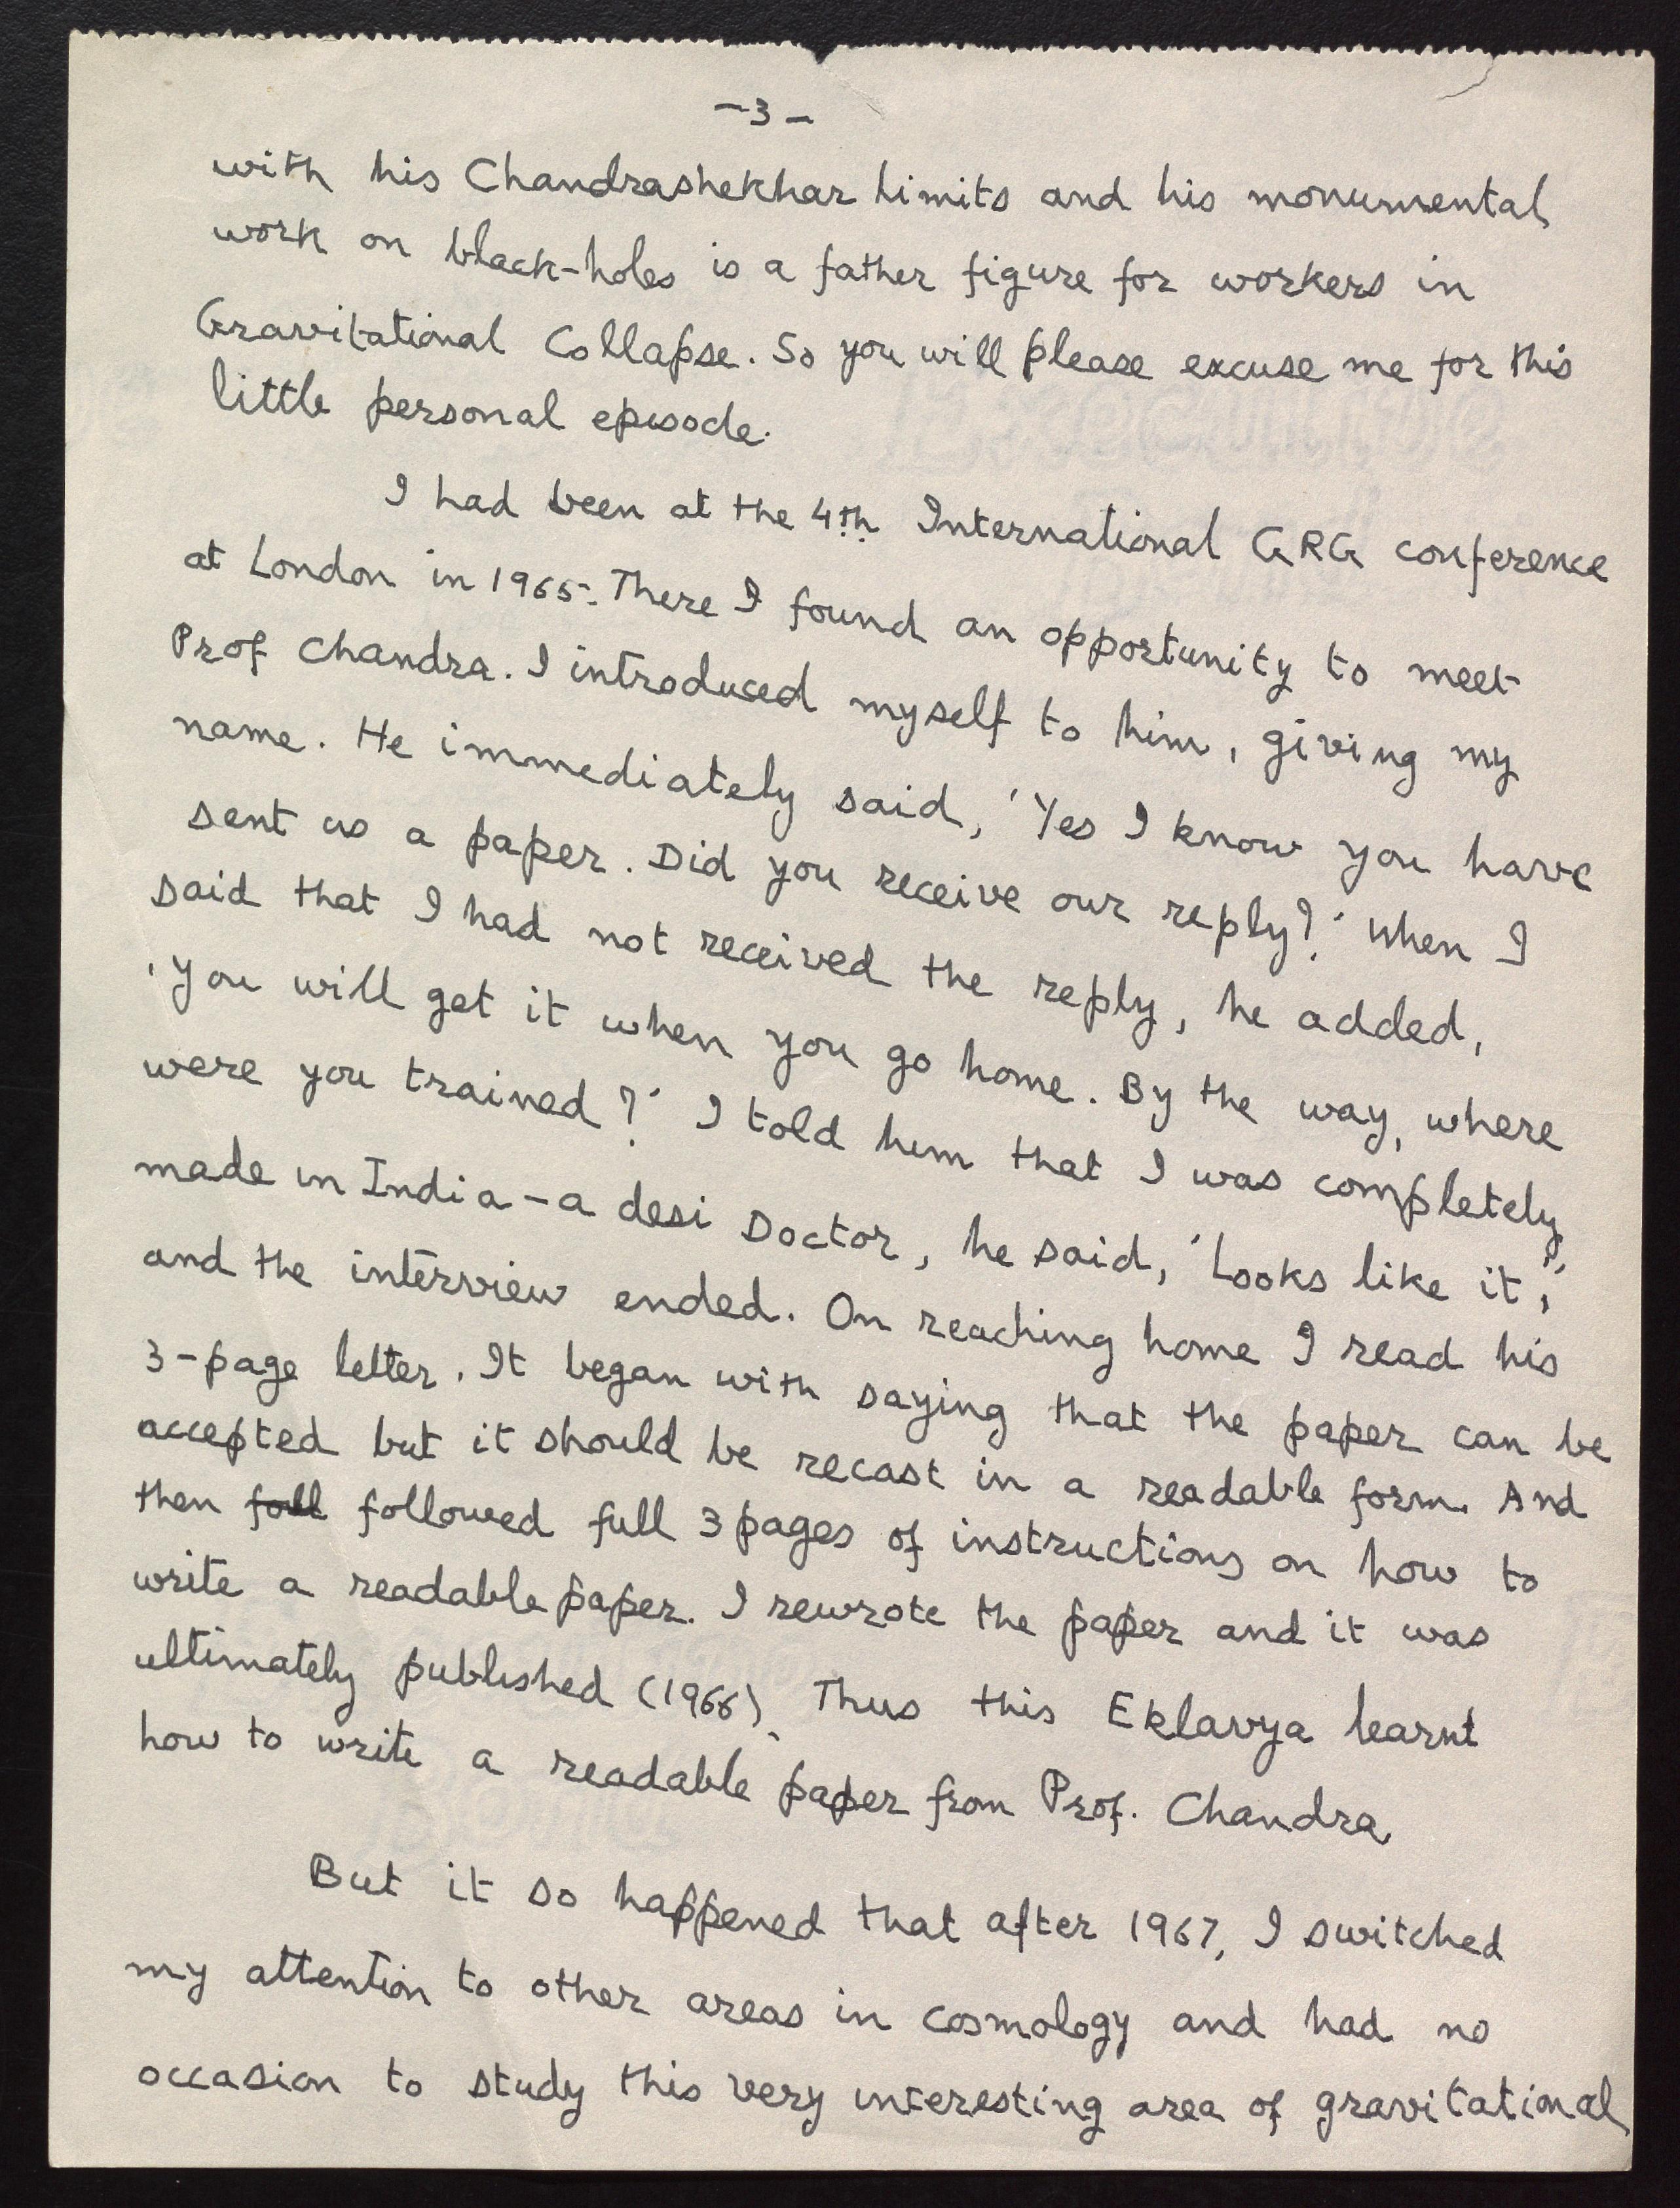 -3-
with his Chandrashekhar limits and his monumental
work on black-holes is a father figure for workers in
Gravitational Collapse. So you will please excuse me for this
little personal episode.
I had been at the 4th International GRG conference
at London in 1965. There I found an opportunity to meet
Prof Chandra. I introduced myself to him, giving my
name. He immediately said, 'Yes I know you have
sent us a paper. Did you receive our reply?' When I
said that I had not received the reply, he added,
'You will get it when you go home. By the way, where
were you trained?' I told him that I was completely
made in India - a desi Doctor, he said, 'Looks like it,'
and the interview ended. On reaching home I read his
3-page letter. It began with saying that the paper can be
accepted but it should be recast in a readable form. And
then foll followed full 3 pages of instructions on how to
write a readable paper. I rewrote the paper and it was
ultimately published (1966). Thus this Eklavya learnt
how to write a readable paper from Prof. Chandra.
But it so happened that after 1967, I switched
my attention to other areas in cosmology and had no
occasion to study this very interesting area of gravitational